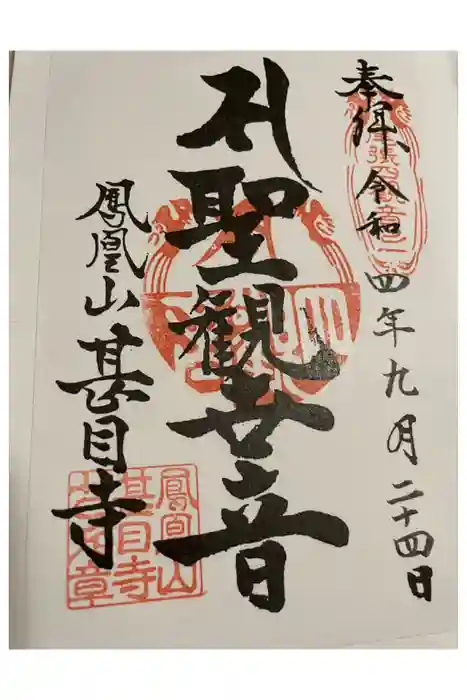 奉拝 令和四年九月二十四日
聖観世音
鳳凰山甚目寺
鳳凰山
甚目寺